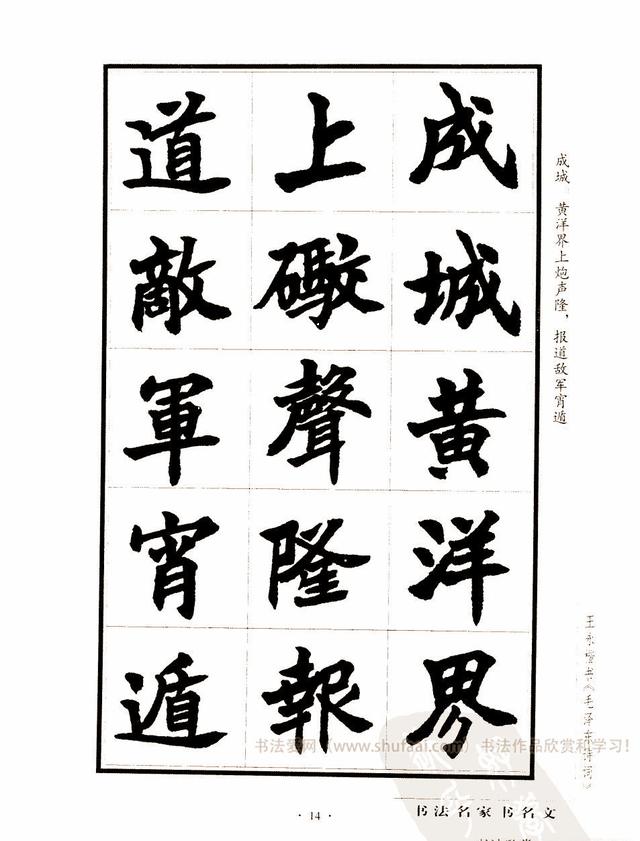 成城黄洋界
上礮聲隆報
道敵軍宵遁
成城。黄洋界上炮声隆，报道敌军宵遁
王永楷书《毛泽东诗词》
书法爱网（www.shufaai.com）书法作品欣赏和学习！
·14·
书法名家书名文